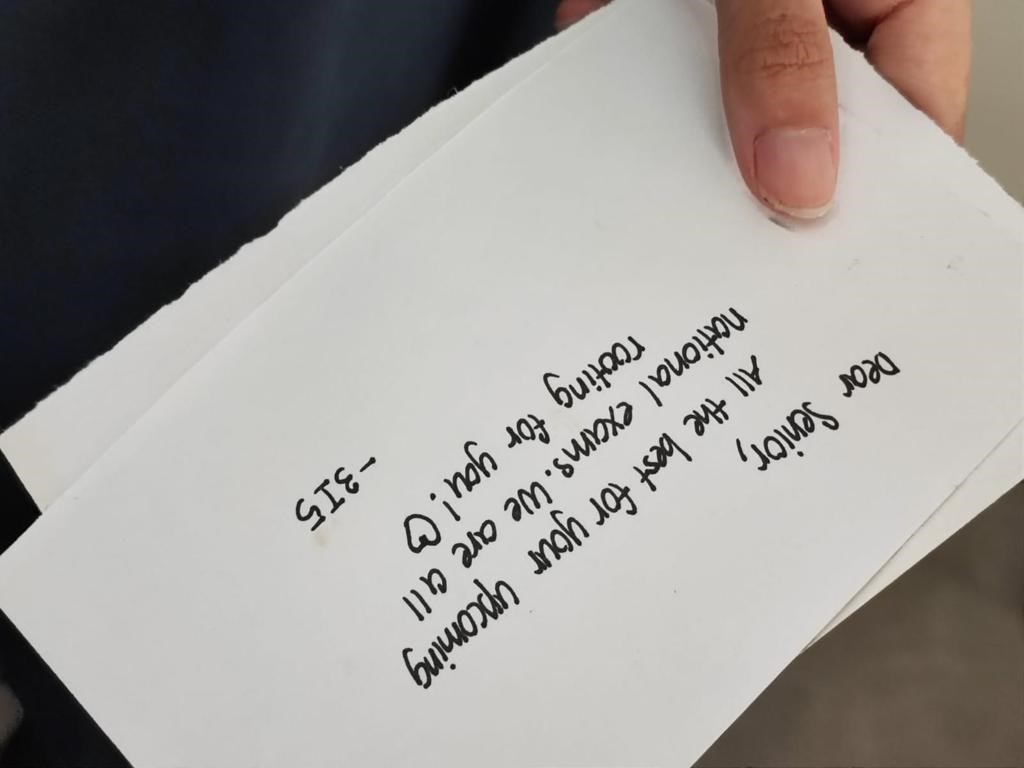 Dear Senior,
All the best for your upcoming
national exams. We are all
rooting for you! ♡
- 3I5